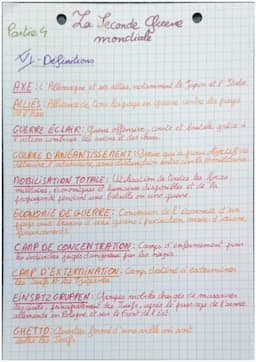 Partie 4
La Seconde Guerre
mondiale
1 - Définitions
AXE : L'Allemagne et ses alliés, notamment le Japon et l'Italie.
ALLIÉS : Alliance de tous les pays en guerre contre les pays
de l'Axe
GUERRE ÉCLAIR : Guerre offensive, courte et brutale grâce à
l'action combinée des avions et des chars.
GUERRE D'ANÉANTISSEMENT : Guerre qui a pour objectif de
MOBILISATION TOTALE : Utilisation de toutes les forces
militaires, économiques et humaines disponibles et de la
propagande pendant une bataille ou une guerre.
ÉCONOMIE DE GUERRE : Conversion de l'économie d'un
pays aux besoins d'une guerre : production
CAMP DE CONCENTRATION : Camps d'enfermement pour
les individus jugés dangereux par les nazis.
CAMP D'EXTERMINATION : Camp destiné à exterminer
les Juifs et les Tziganes.
EINSATZGRUPPEN : Groupes mobiles chargés de massacrer
principalement des Juifs, après le passage de l'armée
allemande en Pologne et sur le front de l'Est.
GHETTO : Quartier fermé d'une ville où sont
les Juifs.